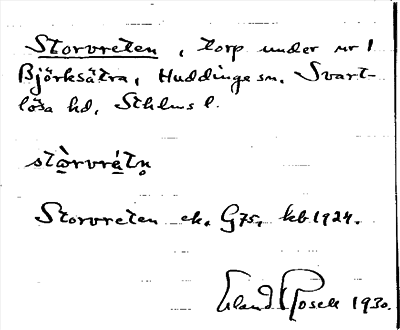 Storvreten, torp under nr 1
Björksätra, Huddinge sn. Svart-
lösa hd, Sthlms l.
stòrvrétn̥
Storvreten ek. G75, kb 1924.
Erland Rosell 1930.